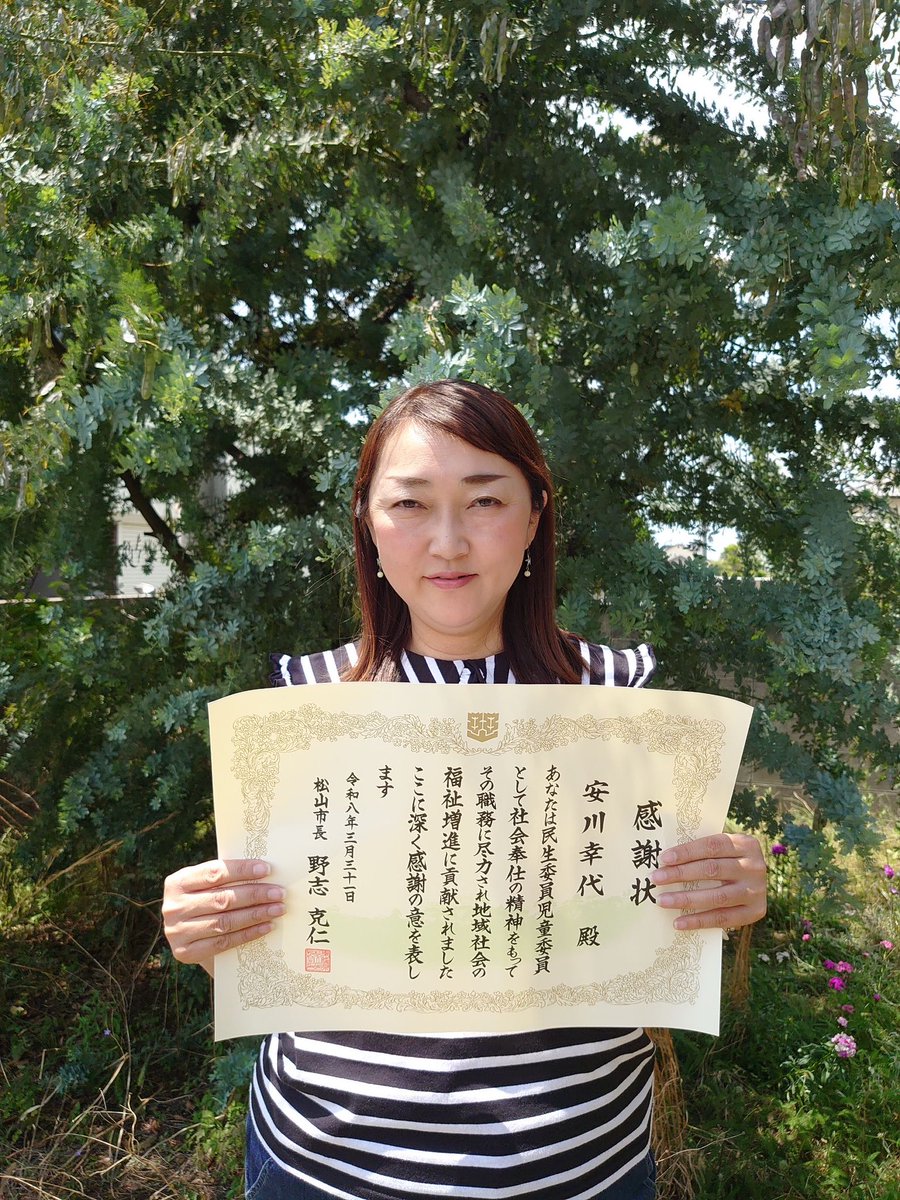 感謝状
安川幸代 殿
あなたは民生委員児童委員
として社会奉仕の精神をもって
その職務に尽力され地域社会の
福祉増進に貢献されました
ここに深く感謝の意を表し
ます
令和八年三月三十一日
松山市長 野志 克仁